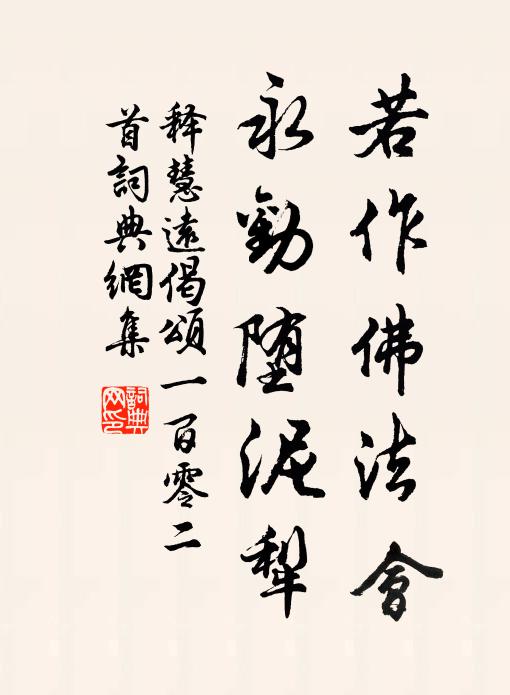 若作佛法會
永勁堕泥犁
释慧遠偈頌一百零二
首詞典網集
詞典网印